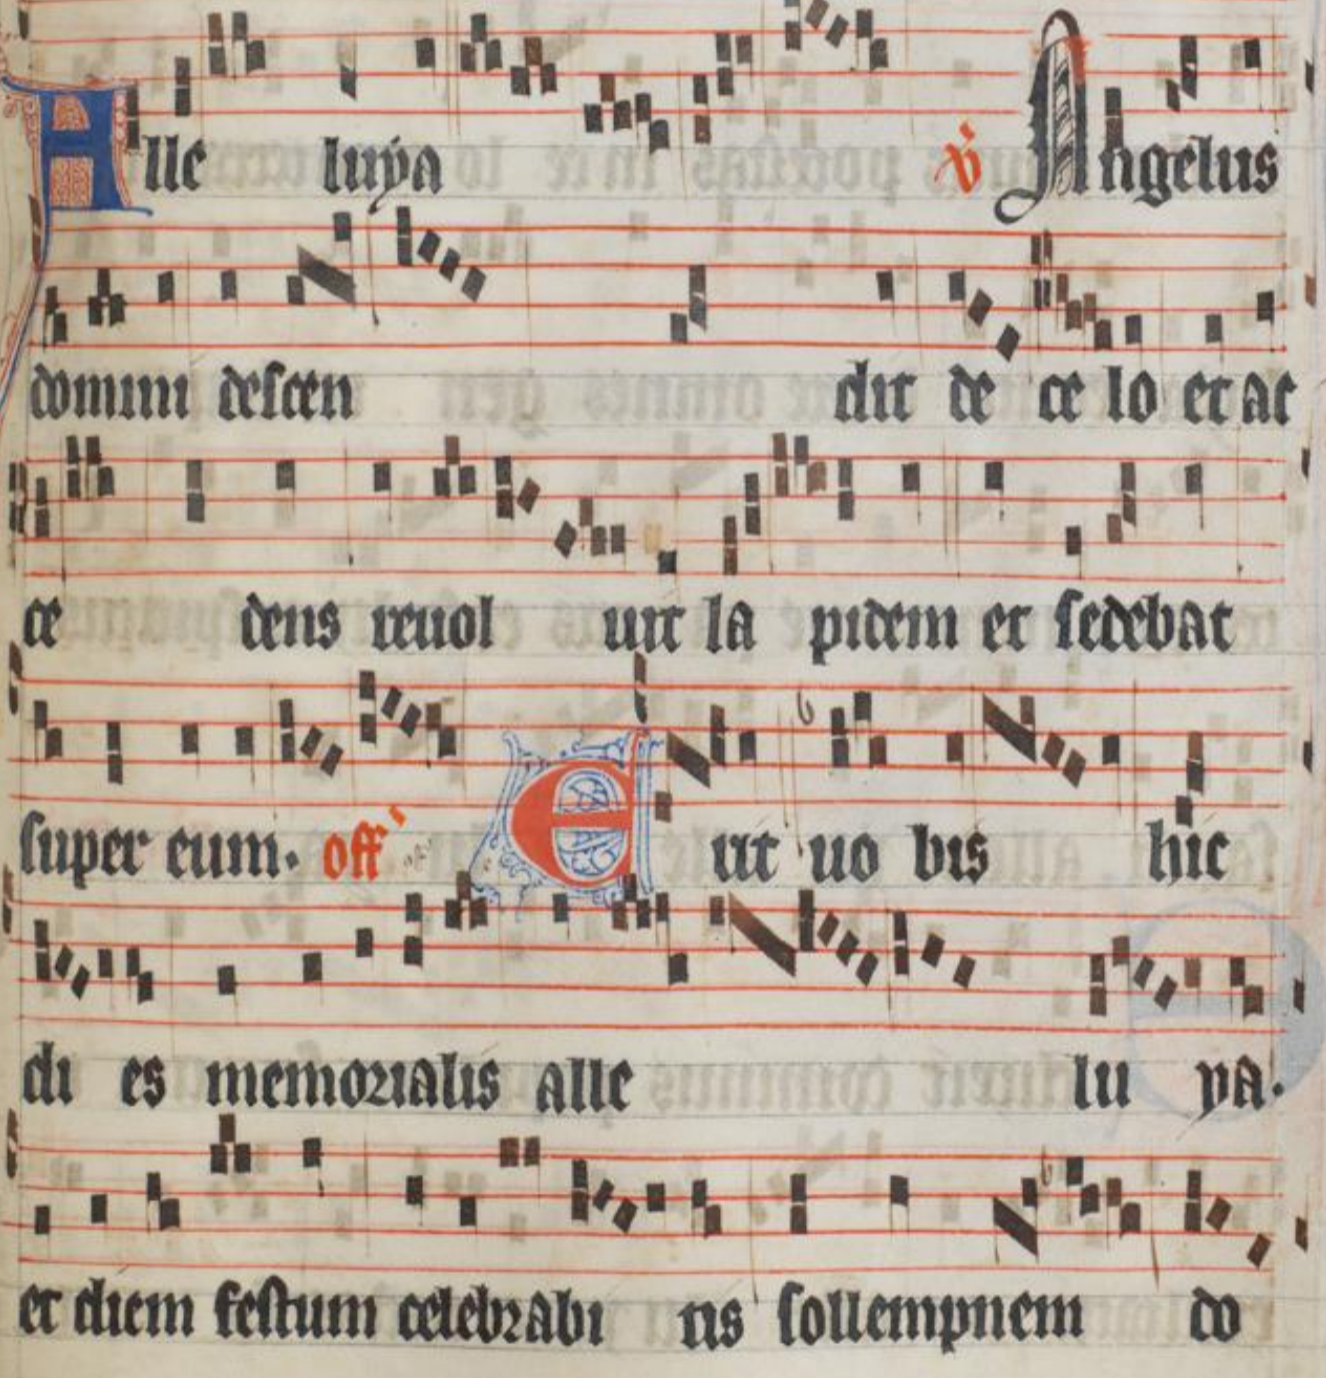 Alle luya v Angelus
domini descen dit de ce lo et ac
ce dens reuol uit la pidem et sedebat
super eum. off Erit uo bis hic
di es memorialis alle lu ya.
et diem festum celebrabi tis sollempnem do